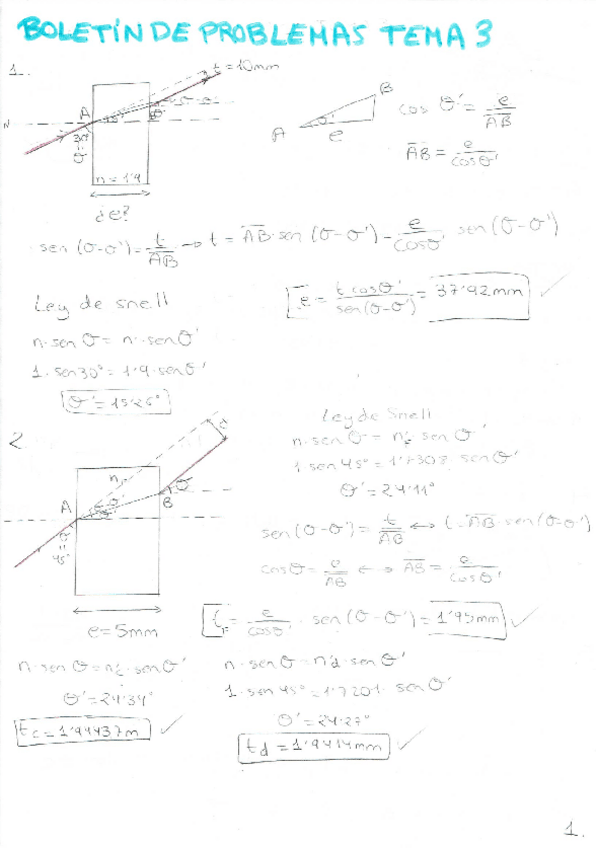 BOLETÍN DE PROBLEMAS TEMA 3
1.
t = 10mm
A
B
N
30º
θ
n = 1'9
¿e?
A
B
θ'
e
cos θ' = e/AB
AB = e/cosθ'
sen (θ-θ') = t/AB → t = AB·sen (θ-θ') = e/cosθ' sen (θ-θ')
Ley de snell
e = t cosθ'/sen(θ-θ') = 37'92mm ✓
n·sen θ = n'·senθ'
1·sen30º = 1'9·senθ'
θ' = 15'26º
2
d
n
θ
A
B
θ
45º
e=5mm
Ley de Snell
n·sen θ = n'·sen θ'
1 sen45º = ·senθ'
θ' = 24'11º
sen (θ-θ') = t/AB ↔ AB·sen(θ-θ')
cosθ = e/AB ↔ AB = e/cosθ'
= e/cosθ' · sen (θ-θ') = 1'95mm ✓
n·sen θ = ·senθ'
θ' = 24'34º
tc = 1'94437m ✓
n·senθ = n'd·senθ'
1·sen45º = 1'7201·senθ'
θ' = 24'27º
td = mm ✓
1.